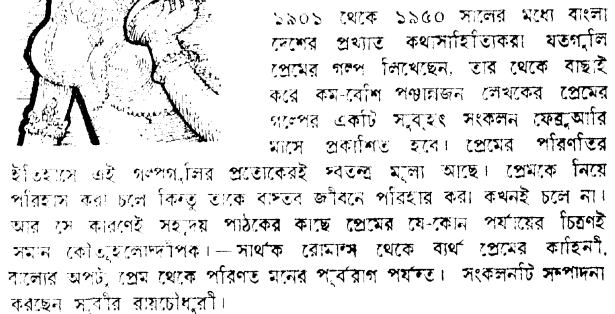 ১৯০১ থেকে ১৯৫০ সালের মধ্যে বাংলা
দেশের প্রখ্যাত কথাসাহিত্যিকরা যতগুলি
প্রেমের গল্প লিখেছেন, তার থেকে বাছাই
করে কম-বেশি পঞ্চান্নজন লেখকের প্রেমের
গল্পের একটি সুবৃহৎ সংকলন ফেব্রুআরি
মাসে প্রকাশিত হবে। প্রেমের পরিণতির
ইতিহাসে এই গল্পগুলির প্রত্যেকেরই স্বতন্ত্র মূল্য আছে। প্রেমকে নিয়ে
পরিহাস করা চলে কিন্তু তাকে বাস্তব জীবনে পরিহার করা কখনই চলে না।
আর সে কারণেই সহৃদয় পাঠকের কাছে প্রেমের যে-কোন পর্যায়ের চিত্রণই
সমান কৌতূহলোদ্দীপক।—সার্থক রোমান্স থেকে ব্যর্থ প্রেমের কাহিনী,
বাল্যের অপট, প্রেম থেকে পরিণত মনের পূর্বরাগ পর্যন্ত। সংকলনটি সম্পাদনা
করছেন সুবীর রায়চৌধুরী।